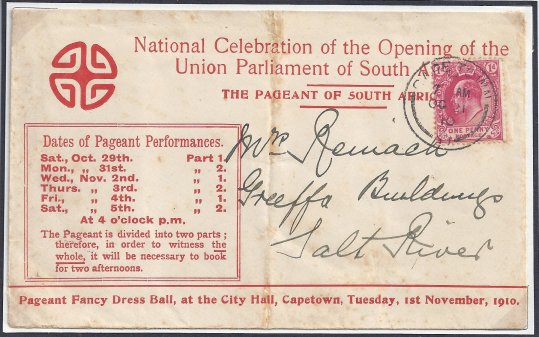 National Celebration of the Opening of the
Union Parliament of South
THE PAGEANT OF SOUTH AFRICA
ONE PENNY
Dates of Pageant Performances.
Sat., Oct. 29th. Part 1.
Mon., „ 31st. „ 2.
Wed., Nov. 2nd „ 1.
Thurs. „ 3rd. „ 2.
Fri., „ 4th. „ 1.
Sat., „ 5th. „ 2.
At 4 o'clock p.m.
The Pageant is divided into two parts;
therefore, in order to witness the
whole, it will be necessary to book
for two afternoons.
Reinach
Greeffa Buildings
Salt River
Pageant Fancy Dress Ball, at the City Hall, Capetown, Tuesday, 1st November, 1910.